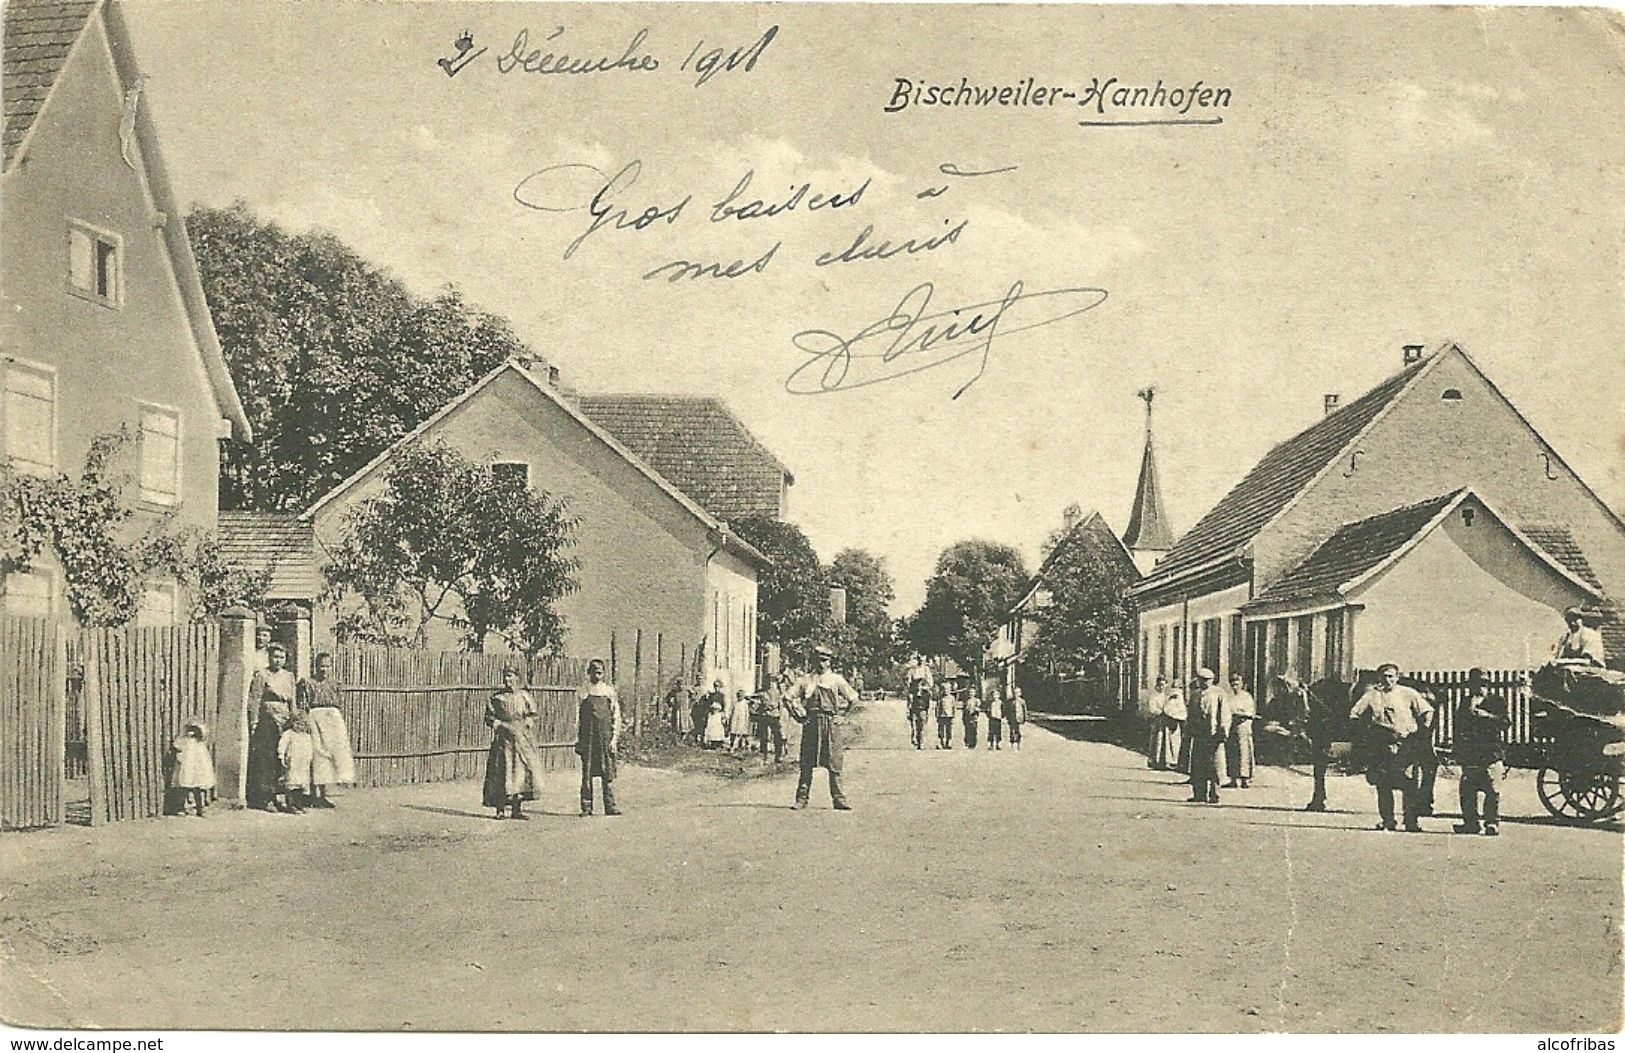 2 Décembre 1918
Bischweiler-Hanhofen
Gros baisers à
mes chéris
www.delcampe.net
alcofribas